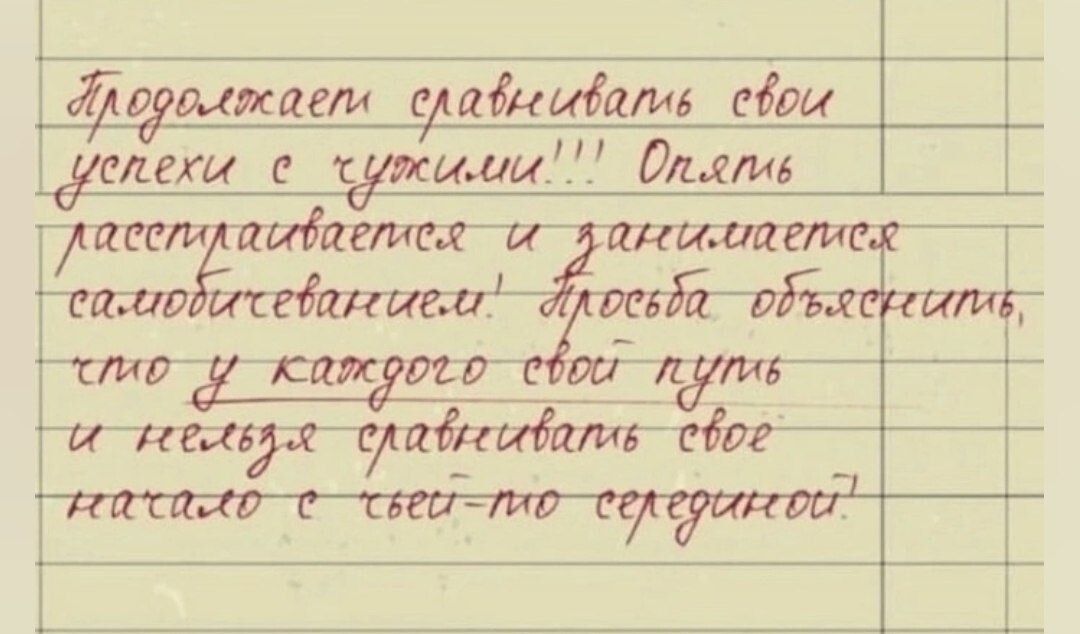 Продолжает сравнивать свои
успехи с чужими!!! Опять
расстраивается и занимается
самобичеванием! Просьба объяснить,
что у каждого свой путь
и нельзя сравнивать своё
начало с чьей-то серединой!